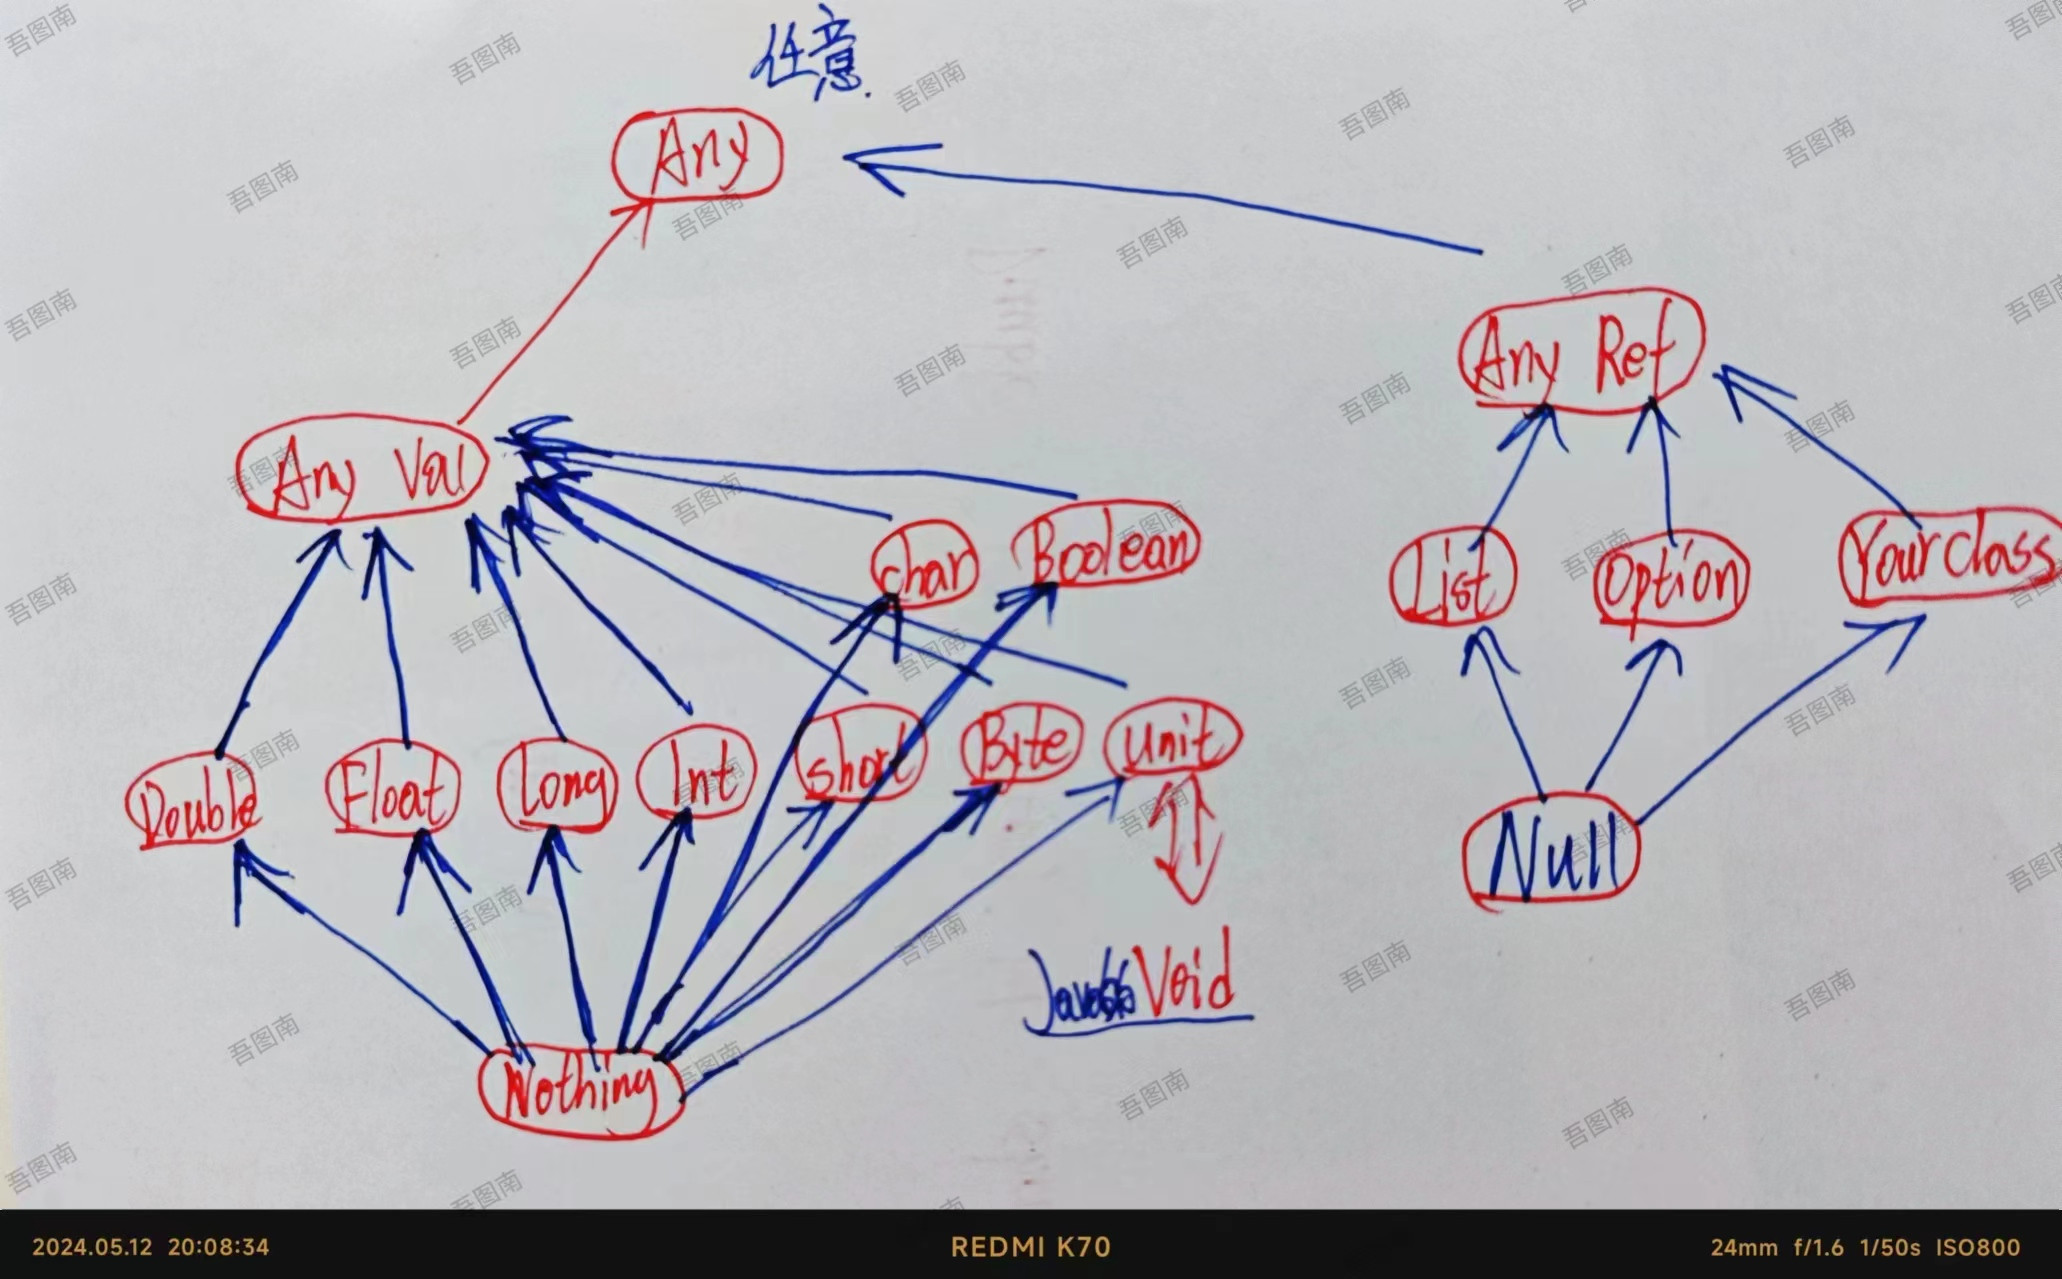 任意.
Any
Any Ref
Any Val
char
Boolean
List
Option
Yourclass
Double
Float
Long
Int
short
Byte
unit
Null
Java的Void
Nothing
吾图南
2024.05.12 20:08:34
REDMI K70
24mm f/1.6 1/50s ISO800